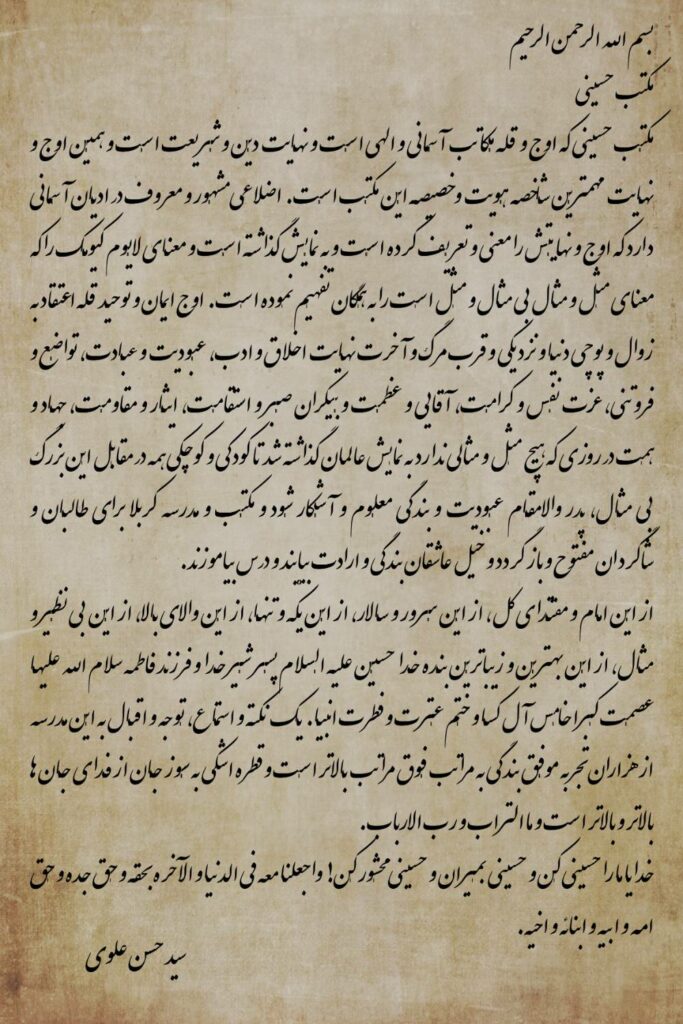 بسم الله الرحمن الرحیم
مکتب حسینی
مکتب حسینی که اوج و قله مکاتب آسمانی و الهی است و نهایت دین و شریعت است و همین اوج و
نهایت مهمترین شاخصه هویت و خصیصه این مکتب است. اضلاعی مشهور و معروف در ادیان آسمانی
دارد که اوج و نهایتش را معنی و تعریف کرده است و به نمایش گذاشته است و معنای لایوم کیومک را که
معنای مثل و مثال بی مثال و مثل است را به همگان تفهیم نموده است. اوج ایمان و توحید قله اعتقاد به
زوال و پوچی دنیا و نزدیکی و قرب مرگ و آخرت نهایت اخلاق و ادب، عبودیت و عبادت، تواضع و
فروتنی، عزت نفس و کرامت، آقایی و عظمت و بیکران صبر و استقامت، ایثار و مقاومت، جهاد و
همت در روزی که هیچ مثل و مثالی ندارد به نمایش عالمان گذاشته شد تا کودکی و کوچکی همه در مقابل این بزرگ
بی مثال، پدر والامقام عبودیت و بندگی معلوم و آشکار شود و مکتب و مدرسه کربلا برای طالبان و
شاگردان مفتوح و باز گردد و خیل عاشقان بندگی و ارادت بیابند و درس بیاموزند.
از این امام و مقتدای کل، از این سرور و سالار، از این یکه و تنها، از این والای بالا، از این بی نظیر و
مثال، از این بهترین و زیباترین بنده خدا حسین علیه السلام پسر شیر خدا و فرزند فاطمه سلام الله علیها
عصمت کبرا خامس آل کسا و ختم عترت و فطرت انبیاء. یک نکته و استماع، توجه و اقبال به این مدرسه
از هزاران تجربه موفق بندگی به مراتب فوق مراتب بالاتر است و قطره اشکی به سوز جان از فدای جان ها
بالاتر و بالاتر است و ما التراب و رب الارباب.
خدایا ما را حسینی کن و حسینی بمیران و حسینی محشور کن! واجعلنا معه فی الدنیا و الآخره بحقه و حق جده و حق
امه و ابیه و ابنائه و اخیه.
سید حسن علوی